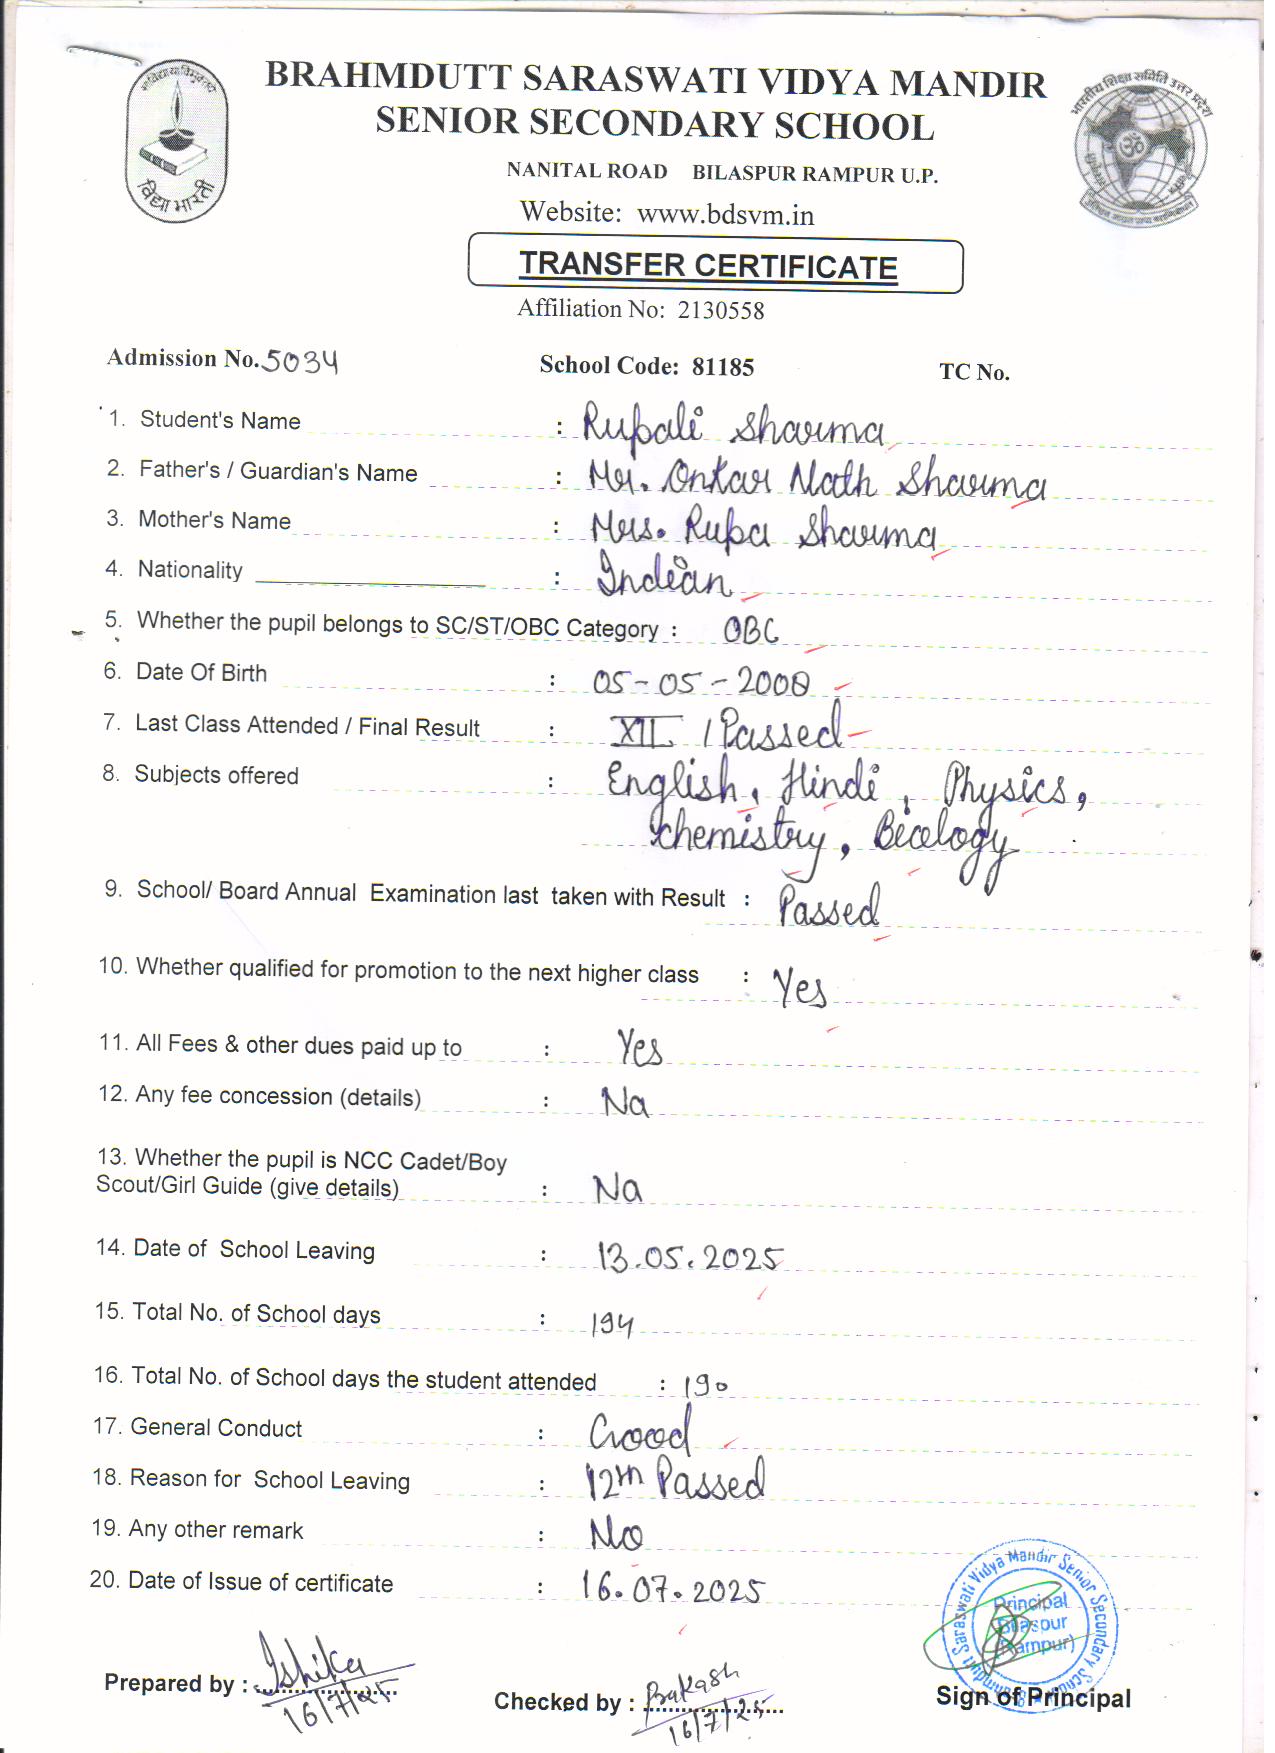 BRAHMDUTT SARASWATI VIDYA MANDIR
SENIOR SECONDARY SCHOOL
NANITAL ROAD BILASPUR RAMPUR U.P.
Website: www.bdsvm.in
विद्या भारती
भारतीय शिक्षा समिति उत्तर प्रदेश
TRANSFER CERTIFICATE
Affiliation No: 2130558
Admission No. 5034 School Code: 81185 TC No.
1. Student's Name : Rupali Sharma
2. Father's / Guardian's Name : Mr. Onkar Nath Sharma
3. Mother's Name : Mrs. Rupa Sharma
4. Nationality : Indian
5. Whether the pupil belongs to SC/ST/OBC Category : OBC
6. Date Of Birth : 05-05-2008
7. Last Class Attended / Final Result : XII / Passed
8. Subjects offered : English, Hindi, Physics,
chemistry, Biology
9. School/ Board Annual Examination last taken with Result : Passed
10. Whether qualified for promotion to the next higher class : Yes
11. All Fees & other dues paid up to : Yes
12. Any fee concession (details) : Na
13. Whether the pupil is NCC Cadet/Boy
Scout/Girl Guide (give details) : Na
14. Date of School Leaving : 13.05.2025
15. Total No. of School days : 194
16. Total No. of School days the student attended : 190
17. General Conduct : Good
18. Reason for School Leaving : 12th Passed
19. Any other remark : No
20. Date of Issue of certificate : 16.07.2025
Saraswati Vidya Mandir Senior Secondary School
Principal
Bilaspur
(Rampur)
Prepared by : Ishika
16/7/25
Checked by : Prakash
16/7/25
Sign of Principal